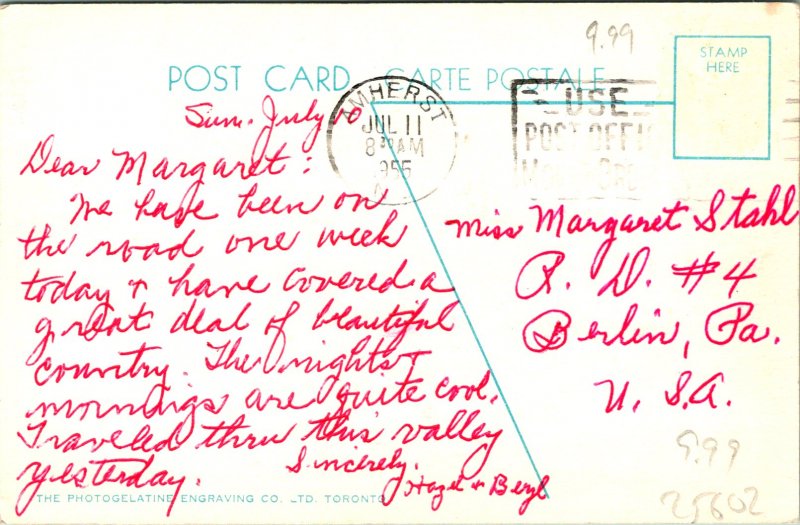 9.99
STAMP
HERE
POST CARD CARTE POSTALE
AMHERST
JUL 11
8 30 AM
1955
USE
POST OFFI
Sun. July 10
Dear Margaret:
We have been on
the road one week
today & have covered a
great deal of beautiful
country. The nights &
mornings are quite cool.
Traveled thru this valley
yesterday. Sincerely,
Hazel & Beryl
Miss Margaret Stahl
R. D. #4
Berlin, Pa.
U. S. A.
9.99
25602
THE PHOTOGELATINE ENGRAVING CO. LTD. TORONTO